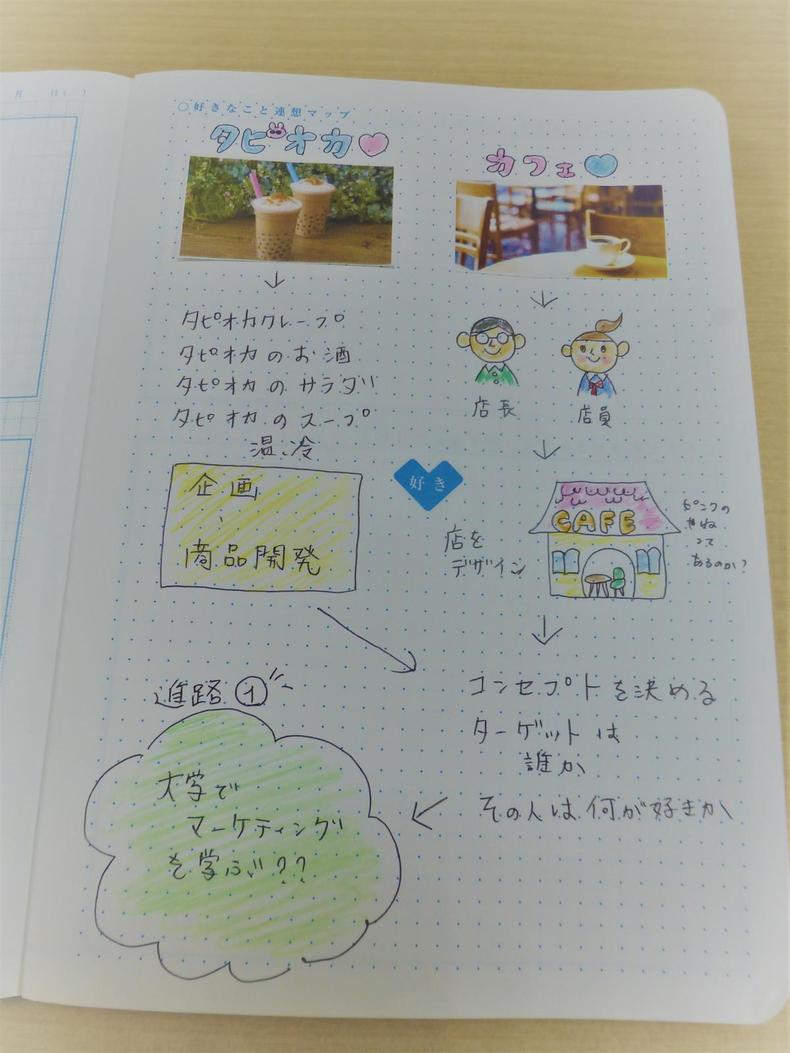 月 日( )
○好きなこと連想マップ
タピオカ
タピオカクレープ
タピオカのお酒
タピオカのサラダ
タピオカのスープ
温、冷
企画、
商品開発
カフェ
店長
店員
好き
店を
デザイン
CAFE
ピンクの
やね
って
あるのか?
コンセプトを決める
ターゲットは
誰か
その人は何が好きか
進路①
大学で
マーケティング
を学ぶ??